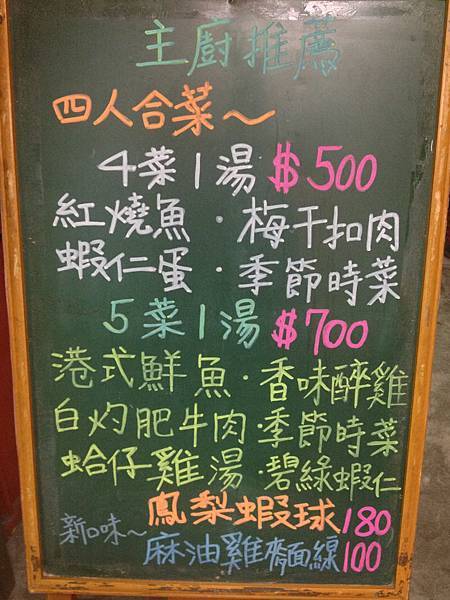 主廚推薦
四人合菜～
4菜1湯$500
紅燒魚·梅干扣肉
蝦仁蛋·季節時菜
5菜1湯$700
港式鮮魚·香味醉雞
白灼肥牛肉·季節時菜
蛤仔雞湯·碧綠蝦仁
新口味～鳳梨蝦球180
麻油雞麵線100